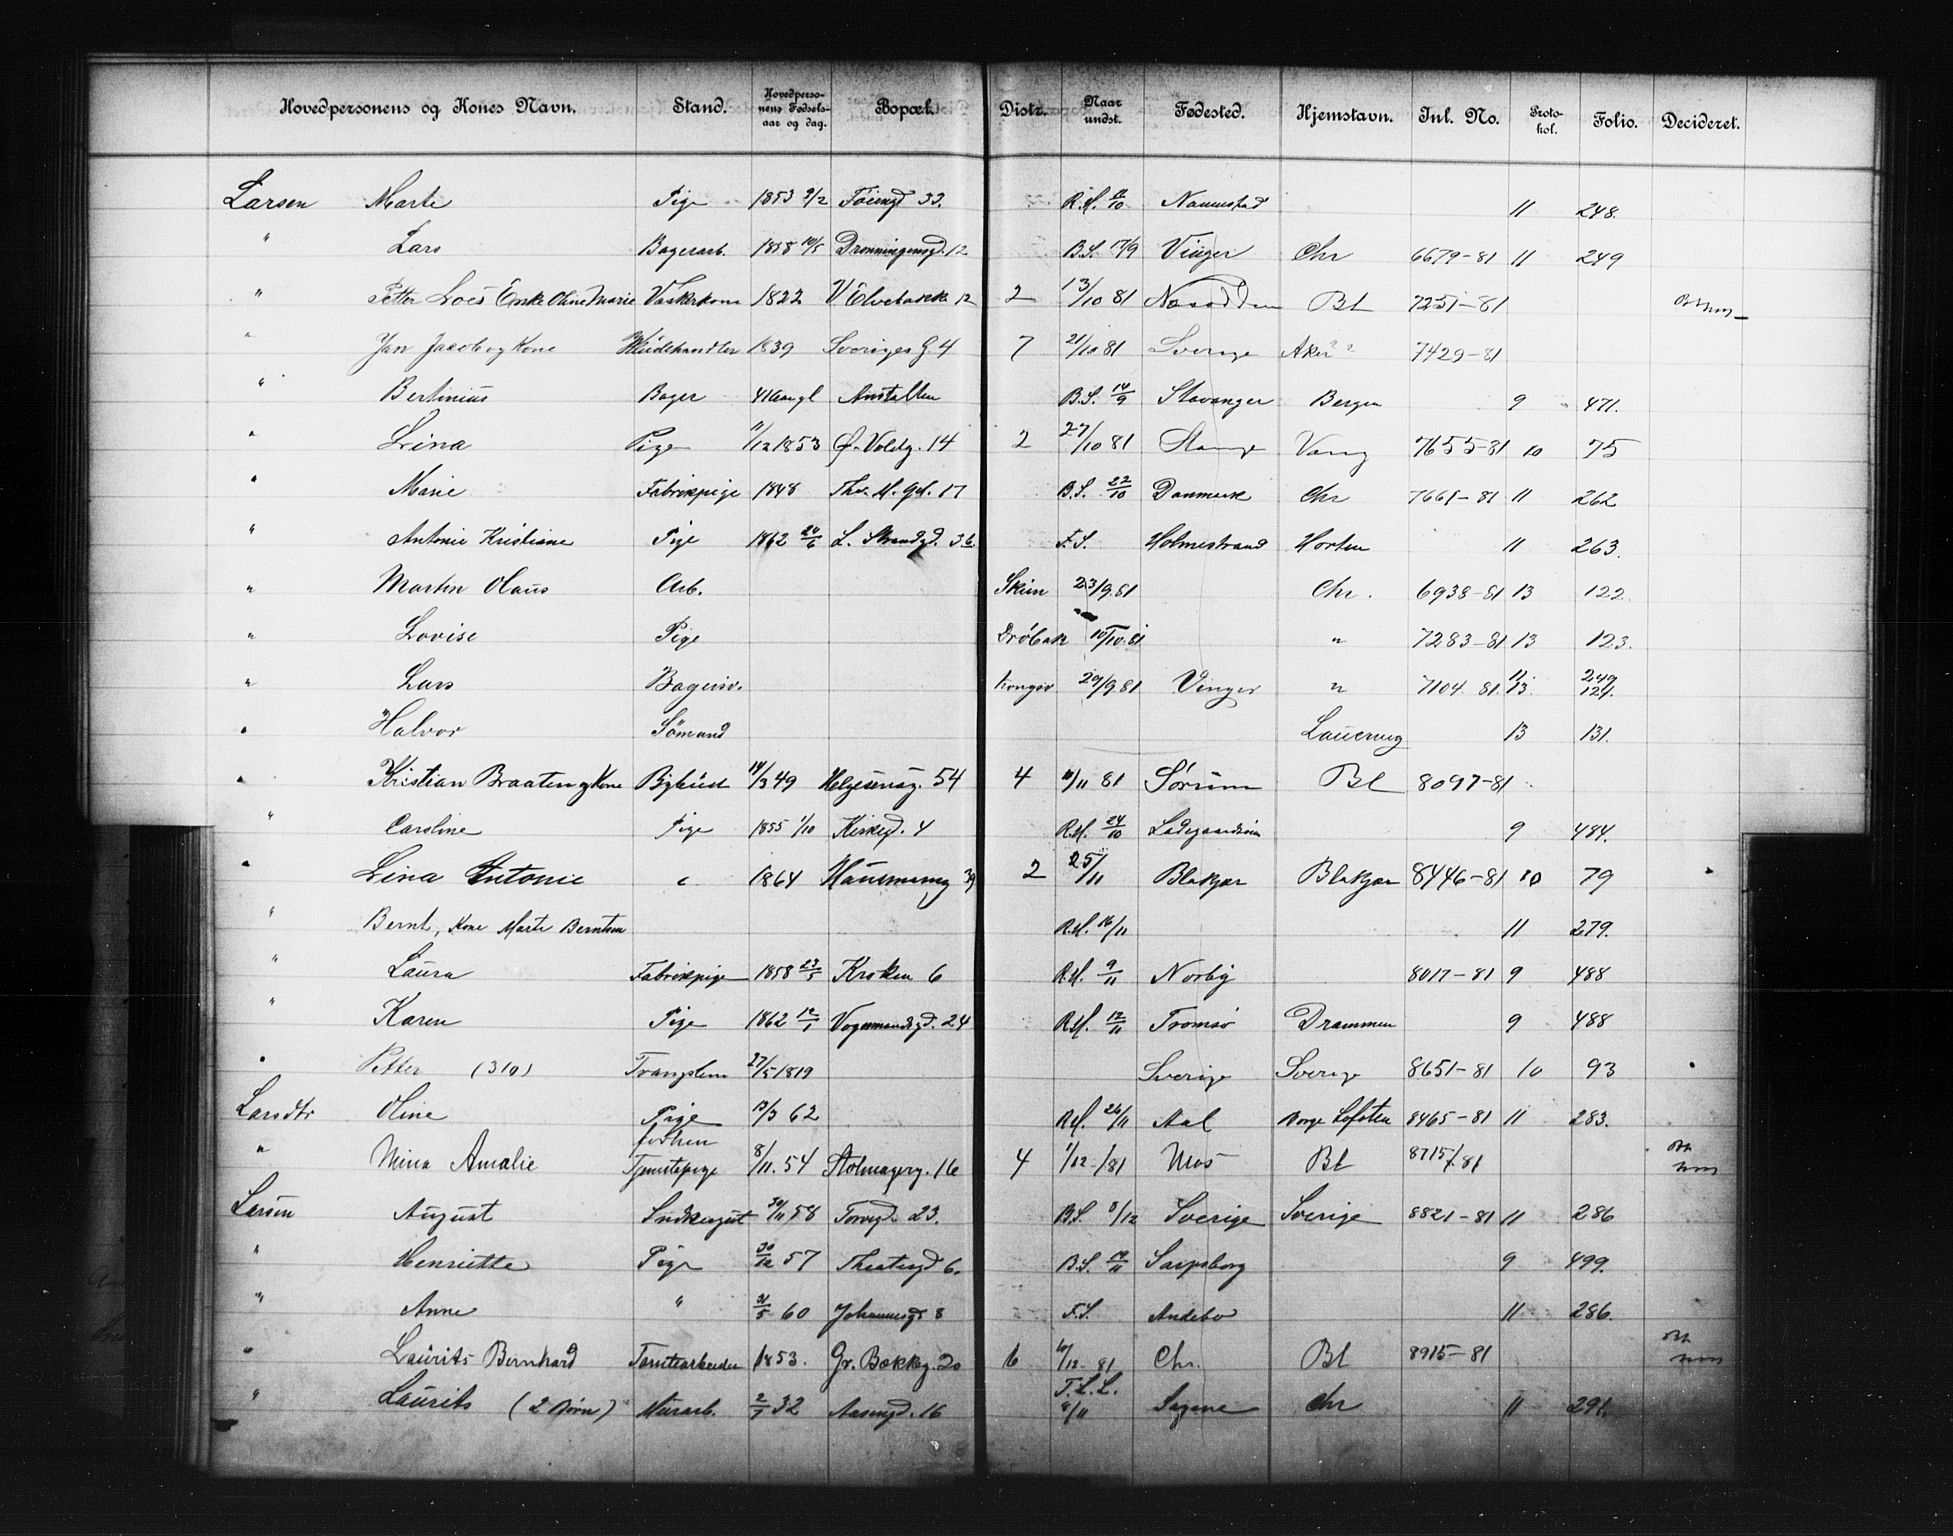 Hovedpersonens og Kones Navn. Stand. Hovedpersonens Fødselsaar og dag. Bopæl. Distr. Naar undst. Fødested. Hjemstavn. Inl. No. Protokol. Folio. Decideret.
Larsen Marte Pige 1853 9/2 Töiengd 33. R.H. 11 248.
" Lars Bagerarb. 1858 10/5 Dronningensgd. 12 B.S. 17/9 Vinger Chr 6679-81 11 249
" Petter Loës Enke Oline Marie Vaskerkone 1822 V. Elvebakk 12 2 13/10 81 Næsodden Bl 7251-81
" Jan Jacob og Kone Kludehandler 1839 Sveriges G. 4 7 21/10 81 Sverige Aker 7429-81
" Bertinius Bager 41 Aar gl Anstalten B.S. 14/9 Stavanger Bergen 9 471.
" Lina Pige 11/12 1853 Ø. Voldg. 14 2 27/10 81 Stange Vang 7655-81 10 75
" Marie Fabrikpige 1848 Th. M. gd. 17 B.S. 22/10 Danmark Chr 7661-81 11 262
" Antonie Kristiane Pige 1862 24/6 L. Strandgd. 36. F.S. Holmestrand Horten 11 263.
" Martin Olaus Arb. Skien 23/9.81 Chr. 6938-81 13 122.
" Lovise Pige Dröbak 10/10.81 " 7283-81 13 123.
" Lars Bagersv. Kongsv 29/9.81 Vinger " 7104 81. 11 13. 249 124.
" Halvor Sömand Laurvig 13 131.
" Kristian Braaten og Kone Bybud 14/3 49 Helgesensg. 54 4 11/11 81 Sørum Bl 8097-81
" Caroline Pige 1855 1/10 Kirkegd. 4 R.H. 24/10 Ladegaardsöen 9 484.
" Lina Antonie " 1864 Hausmansg 39 2 25/11 Blakjær Blakjær 8446-81 10 79
" Bernt, Kone Marte Berntsen R.H. 16/11 11 279.
" Laura Fabrikpige 1858 23/5 Kroken 6 R.H. 9/11 Norby 8017-81 9 488
" Karen Pige 1862 12/1 Vognmandsgd. 24 R.H. 12/11 Tromsø Drammen 9 488
" Petter (310) Tvangslem 27/5 1819 Sverige Sverige 8651-81 10 93
Larsdtr Oline Pige 13/3 62 R.H. 26/11 Aal Borge Lofoten 8465-81 11 283.
" Mina Amalie forhen Tjenstepige 8/11. 54 Stolmagerg. 16 4 1/12 /81 Mos Bl 8715/81
Larsen August Snedkergut 30/11 58 Torvgd. 23. B.S. 3/12 Sverige Sverige 8821-81 11 286
" Henriette Pige 30/12 57 Theatergd 6. B.S. 19/11 Sarpsborg 9 499.
" Anne " 31/5 60 Johannesgd 8 F.S. Andebo 11 286.
" Laurits Bernhard Tomtearbeider 1853. Gr. Bækkeg. 20 6 6/12 81 Chr. Bl 8915-81
" Laurits (2 Børn) Murarb. 2/7 32 Aasengd. 16 T.L.L. 8/11 Sagene Chr 11 291.